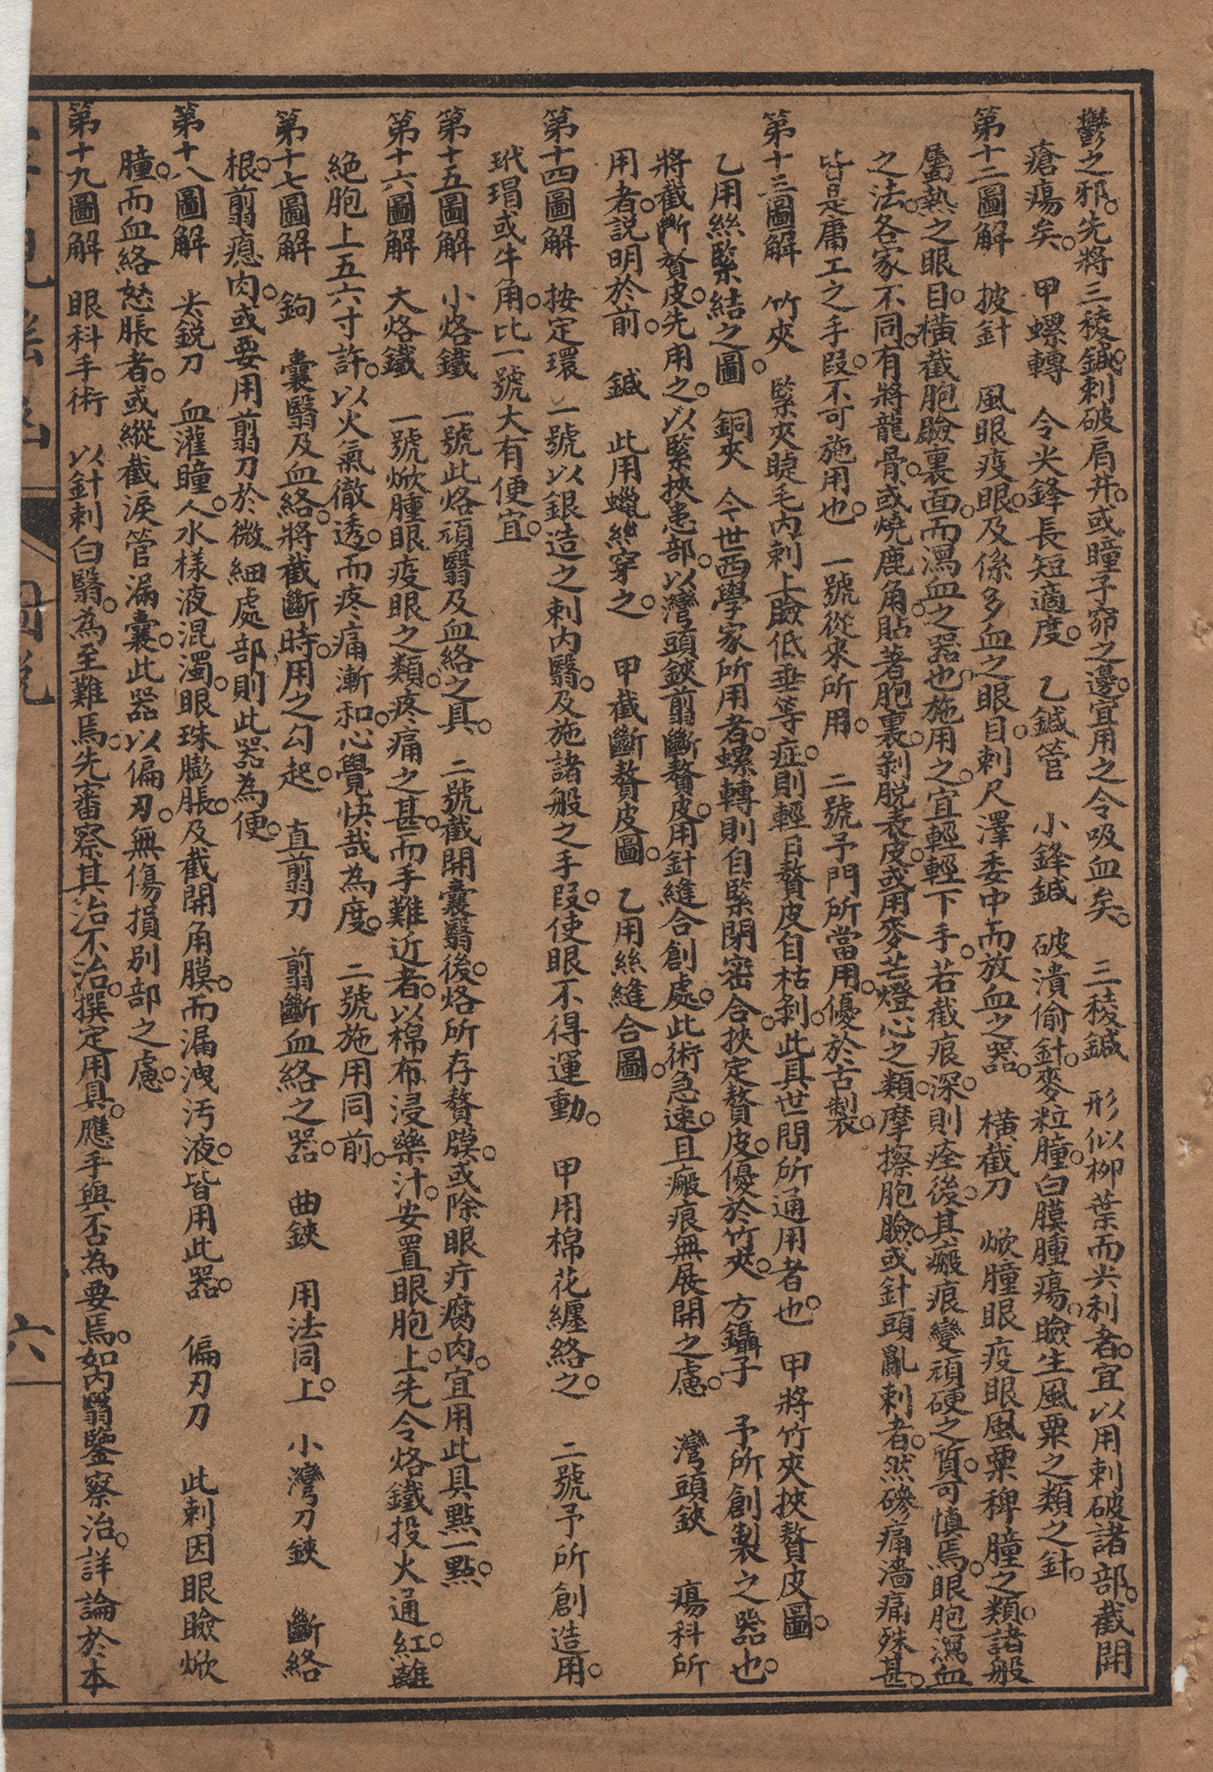 鬱之邪。先將三稜鍼刺破肩井。或瞳子窌之邊。宜用之令吸血矣。　三稜鍼　形似柳葉而尖利者。宜以用刺破諸部。截開
瘡瘍矣。　甲螺轉　令尖鋒長短適度。　乙鍼管　小鋒鍼　破潰偷針。麥粒瞳。白膜腫瘍。瞼生風粟之類之針。
第十二圖解　披針　風眼疫眼。及係多血之眼目。刺尺澤委中而放血之器。　橫截刀　焮瞳眼疫眼風粟稗瞳之類。諸般
䘐熱之眼目。橫截胞瞼裏面。而瀉血之器也。施用之。宜輕輕下手。若截痕深。則痊後。其瘢痕變頑硬之質。可慎焉。眼胞瀉血
之法。各家不同。有將龍骨。或燒鹿角。貼著胞裏。剝脫表皮。或用麥芒燈心之類。摩擦胞瞼。或針頭亂刺者。然磣痛濇痛殊甚。
皆是庸工之手段。不可施用也　一號從來所用。　二號予門所當用。優於古製。
第十三圖解　竹夾　緊夾睫毛內刺上瞼低垂等症。則輕日贅皮自枯剝。此具世間所通用者也。　甲將竹夾挾贅皮圖。
乙用絲緊結之圖。　銅夾　今世西學家所用者。螺轉則自緊閉密合。挾定贅皮。優於竹夾。　方鑷子　予所創製之器也。
將截斷贅皮。先用之。以緊挾患部。以灣頭鋏剪斷贅皮。用針縫合創處。此術急速。且瘢痕無展開之慮。　灣頭鋏　瘍科所
用者。說明於前。　鍼　此用蠟絲穿之。　甲截斷贅皮圖。　乙用絲縫合圖。
第十四圖解　按定環　一號以銀造之刺內翳。及施諸般之手段。使眼不得運動。　甲用棉花纏絡之。　二號予所創造。用
玳瑁或牛角。比一號大有便宜。
第十五圖解　小烙鐵　一號此烙頑翳及血絡之具。　二號截開囊翳。後烙所存贅膜。或除眼疔腐肉。宜用此具點一點。
第十六圖解　大烙鐵　一號焮腫眼疫眼之類。疼痛之甚。而手難近者。以棉布浸藥汁。安置眼胞上。先令烙鐵投火通紅。離
絕胞上五六寸許。以火氣徹透。而疼痛漸和。心覺快哉為度。　二號施用同前。
第十七圖解　鉤　囊翳及血絡。將截斷時。用之勾起。　直剪刀　剪斷血絡之器。　曲鋏　用法同上。　小灣刀鋏　斷絡
根。剪瘜肉。或要用剪刀於微細處部。則此器為便。
第十八圖解　尖鋭刀　血灌瞳人。水樣液混濁。眼珠膨脹。及截開角膜。而漏洩汚液。皆用此器。　偏刃刀　此刺因眼瞼焮
瞳。而血絡怒脹者。或縱截淚管漏囊。此器以偏刃。無傷損別部之慮。
第十九圖解　眼科手術　以針刺白翳。為至難焉。先審察其治不治。撰定用具。應手與否為要焉。如內翳鑒察治。詳論於本
圖說
六